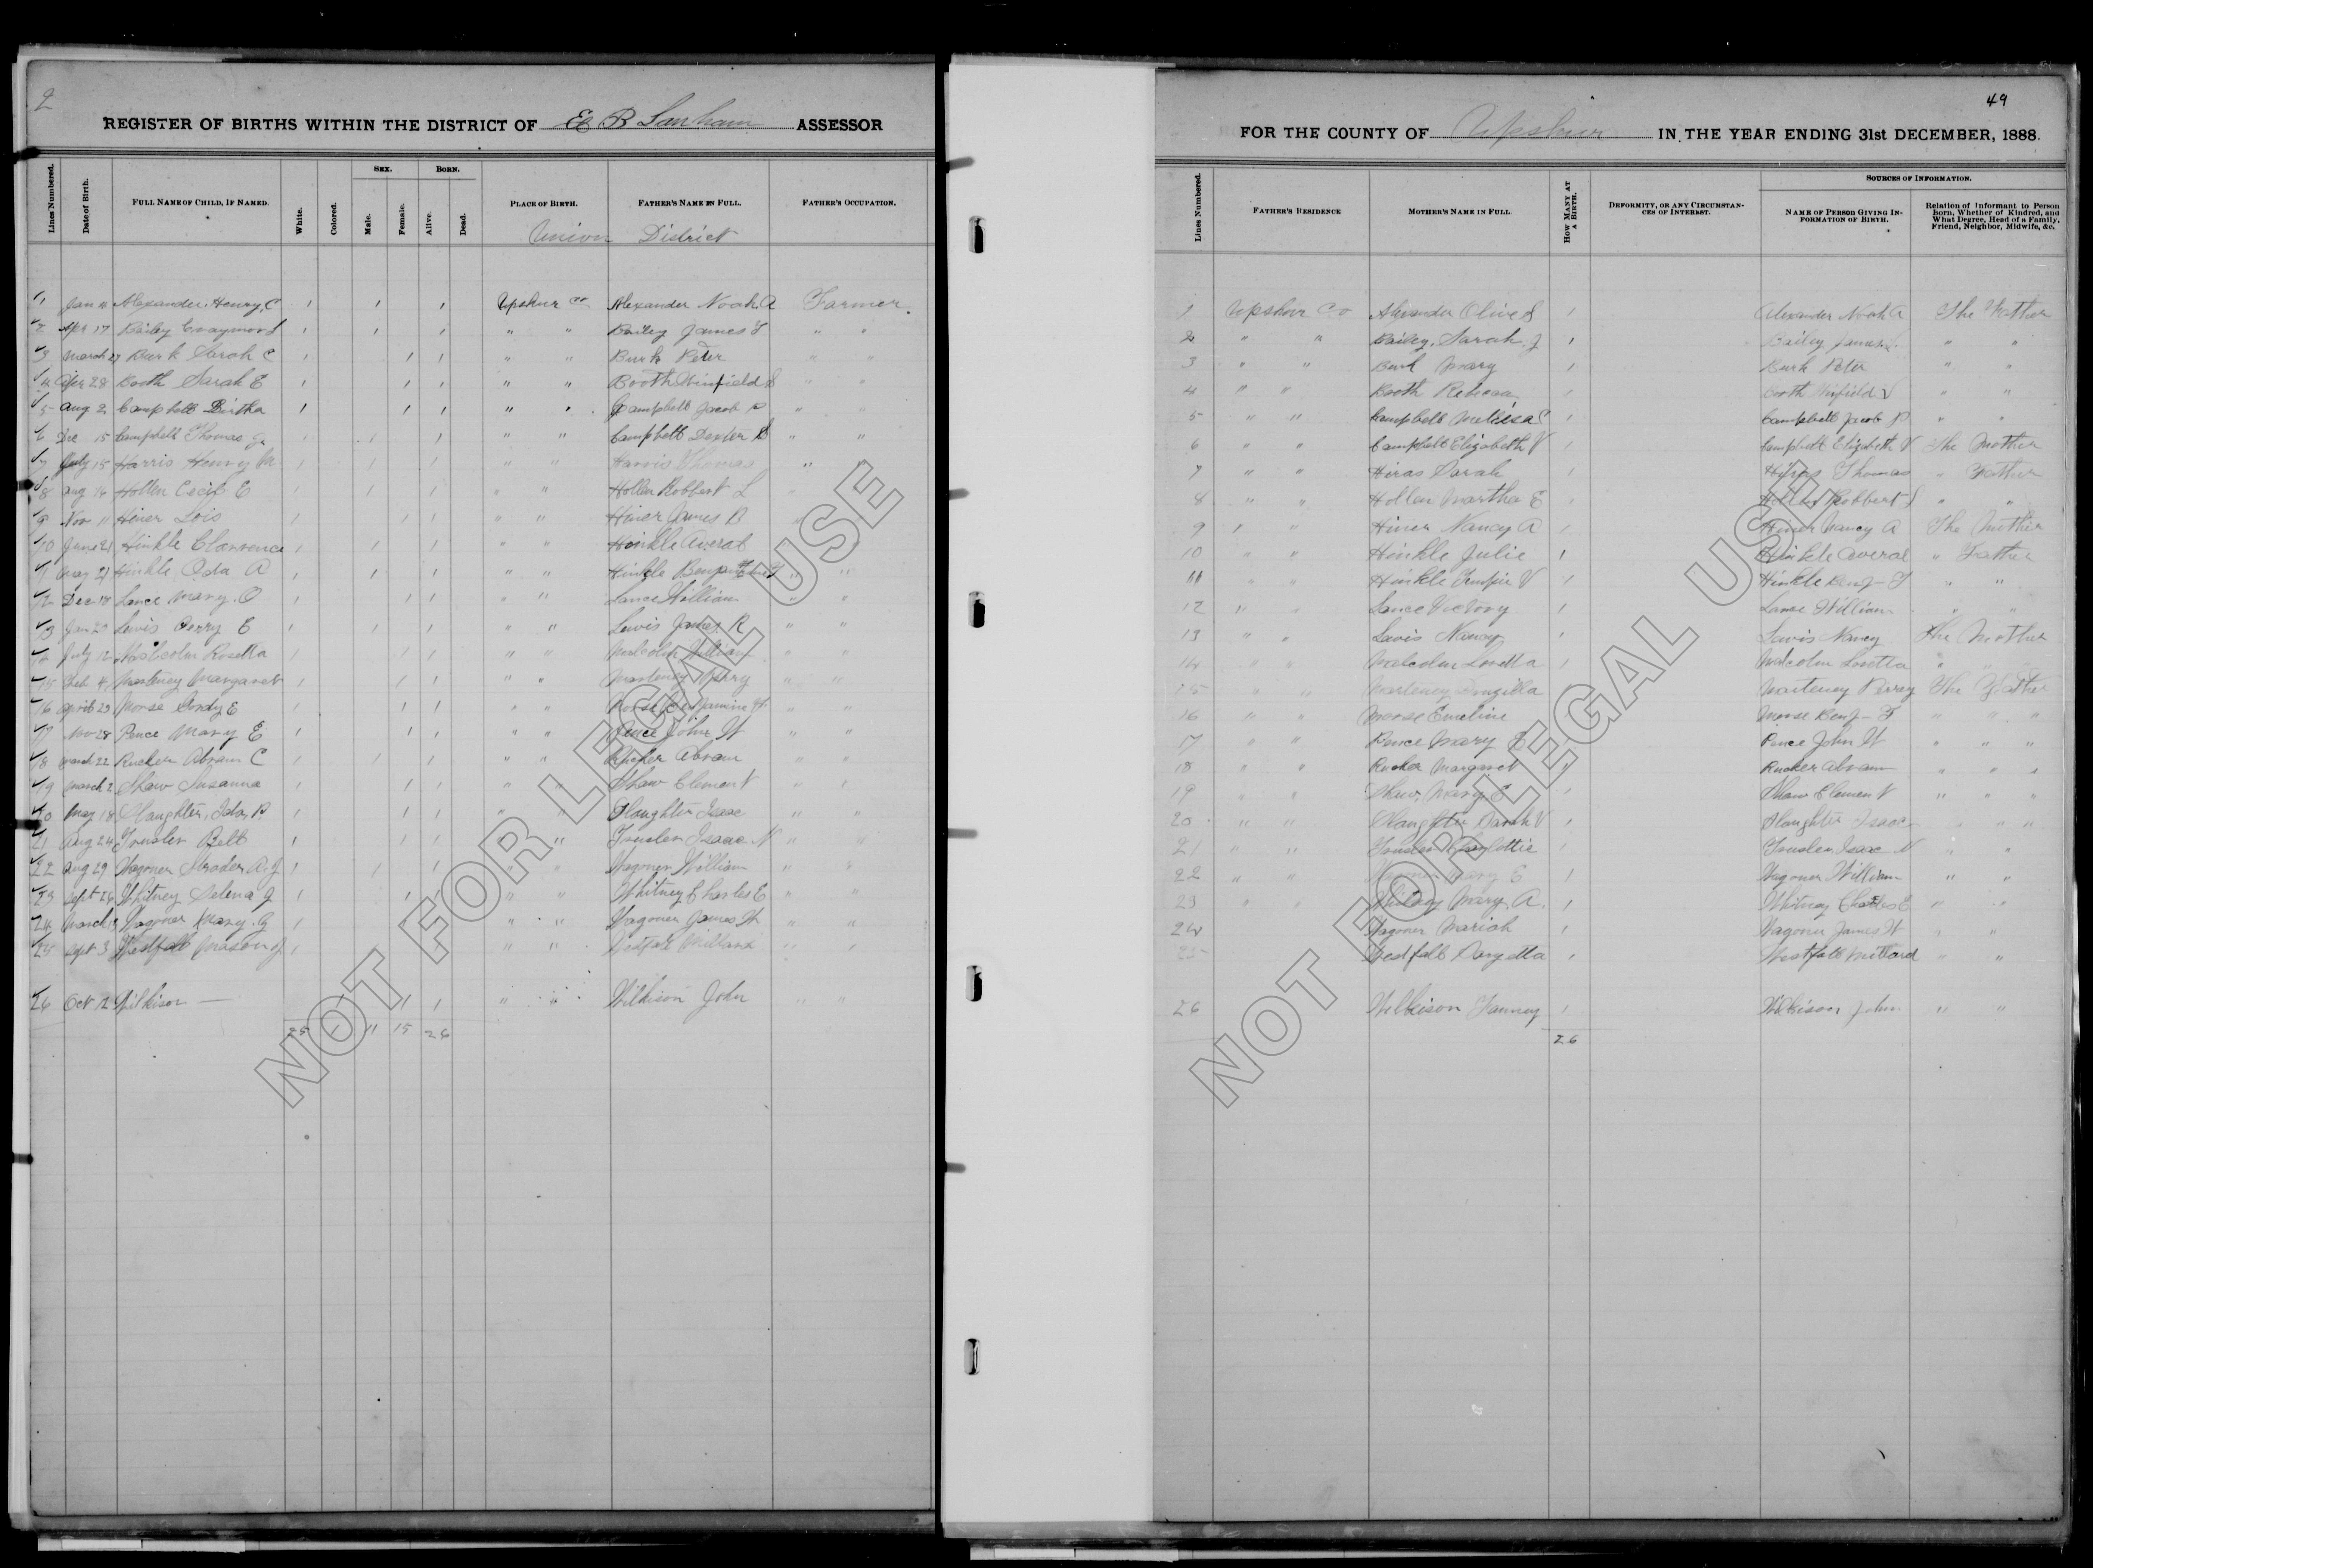 2
REGISTER OF BIRTHS WITHIN THE DISTRICT OF E B Lanham ASSESSOR
Lines Numbered. Date of Birth. FULL NAME OF CHILD, IF NAMED. White. Colored. SEX. Male. Female. BORN. Alive. Dead. PLACE OF BIRTH. FATHER'S NAME IN FULL. FATHER'S OCCUPATION.
Union District
1 Jan Alexander Henry C 1 1 1 Upshur Co Alexander Noah A Farmer.
2 Apr 17 Bailey 1 1 1 " " Bailey James " "
3 March 27 Burk Sarah C 1 1 1 " " Burk Peter " "
4 Apr 28 Booth Sarah E 1 1 1 " " Booth Winfield S " "
5 Aug 2 Campbell Birtha 1 1 1 " " Campbell Jacob P " "
6 Dec 15 Campbell Thomas 1 1 " " Campbell Dexter " "
7 July 15 Harris Henry M 1 1 1 " " Harris Thomas " "
8 Aug 16 Hollen Cecil E 1 1 1 " " Hollen Robbert L "
9 Nov 11 Hiner Lois 1 1 1 " " Hiner James B
10 June 21 Hinkle Clarrence 1 1 1 " " Hinkle Averal "
11 May 27 Hinkle Oda A 1 1 1 " " Hinkle " "
12 Dec 18 Lance Mary O 1 1 1 " " Lance William " "
13 Jan 20 Lewis Perry E 1 1 1 " " Lewis James R " "
14 July 12 Malcolm Rosetta 1 1 1 " " Malcolm William " "
15 Feb 4 Marteney Margaret 1 1 1 " " Marteney Perry " "
16 April 20 Morse E 1 1 1 " " Morse Benjamine " "
17 Nov 28 Pence Mary E 1 1 1 " " Pence John W " "
18 March 22 Rucker Abram C 1 1 1 " " Rucker Abram " "
19 March 2 Shaw Susanna 1 1 1 " Shaw Clement " "
20 May 18 Slaughter, Ida, P. 1 1 1 " Slaughter Isaac " "
21 Aug 24 Tenney Bell 1 1 1 " Isaac N " "
22 Aug 29 Wagoner Stroder A. J 1 1 1 " " Wagoner William " "
23 Sept 26 Whitney Selena J 1 1 " " Whitney Charles E " "
24 March Wagoner Mary. G 1 1 1 " " Wagoner James W " "
25 Sept 3 Westfall Mason J 1 " " Westfall Millard " "
26 Oct 12 Wilkison — 1 1 " " Wilkison John " "
25 11 15 26
49
FOR THE COUNTY OF Upshur IN THE YEAR ENDING 31st DECEMBER, 1888.
Lines Numbered. FATHER'S RESIDENCE MOTHER'S NAME IN FULL. HOW MANY AT A BIRTH. DEFORMITY, OR ANY CIRCUMSTANCES OF INTEREST. SOURCES OF INFORMATION. NAME OF PERSON GIVING INFORMATION OF BIRTH. Relation of Informant to Person Born, Whether of Kindred, and What Degree, Head of a Family, Friend, Neighbor, Midwife, &c.
1 Upshur Co Alexander Olive S 1 Alexander Noah A The Father
2 " " Bailey, Sarah J 1 Bailey James " "
3 " " Burk Mary 1 Burk Peter " "
4 " " Booth Rebecca 1 Booth Winfield S " "
5 " " Campbell Mellisa 1 Campbell Jacob P " "
6 " " Campbell Elizabeth V 1 Campbell Elizabeth V The Mother
7 " " Hiras Sarah 1 Thomas " Father
8 " " Hollen Martha E 1 Hollen Robbert " "
9 " " Hiner Nancy A 1 Hiner Nancy A The Mother
10 " " Hinkle Julie 1 Hinkle Averal " Father
11 " " Hinkle Tempie V 1 Hinkle Benj - F " "
12 " " Lance Victory 1 Lance William " "
13 " " Lewis Nancy 1 Lewis Nancy The Mother
14 " " Malcolm Loretta 1 Malcolm Loretta " "
15 " " Marteney Druzilla Marteney Perry The Father
16 " " Morse Emeline Morse Benj - F " " "
17 " " Pence Mary E Pence John W " " "
18 " " Rucker Margaret Rucker Abram " " "
19 " " Shaw, Mary E 1 Shaw Clement " " "
20 " " Slaughter Sarah V 1 Slaughter Isaac " " "
21 " " Charlottie 1 Isaac N " "
22 " " Wagoner Mary E 1 Wagoner William " "
23 " " Whitney Mary A. 1 Whitney Charles E " "
24 Wagoner Mariah 1 Wagoner James W " "
25 Westfall 1 Westfall Millard " "
26 Wilkison Fanney 1 Wilkison John " "
26
NOT FOR LEGAL USE
NOT FOR LEGAL USE